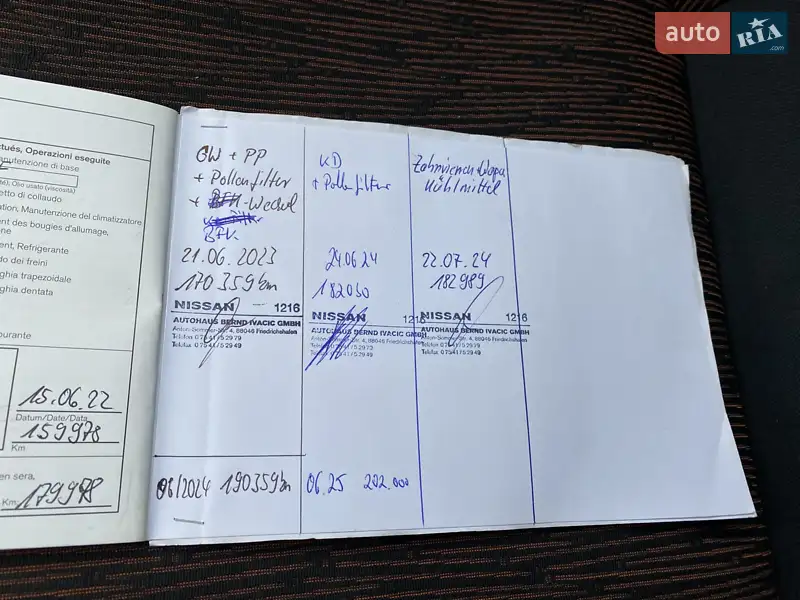 auto RIA.com
ctués, Operazioni eseguite
anutenzione di base
té); Olio usato (viscosità)
etto di collaudo
ation, Manutenzione del climatizzatore
ent des bougies d'allumage,
one
ent, Refrigerante
do dei freini
ghia trapezoidale
ghia dentata
ourante
15.06.22
Datum/Date/Data
159978
Km
en sera,
Km: 179978
GW + PP
+ Pollenfilter
+ Wechsel
BFK
21.06.2023
170359km
NISSAN 1216
AUTOHAUS BERND IVACIC GMBH
Anton-Sommer-Str. 4, 88046 Friedrichshafen
Telefon 07541/52979
Telefax 07541/52949
06/2024 190359km
KD
+ Pollenfilter
24.06.24
182050
NISSAN 1216
AUTOHAUS BERND IVACIC GMBH
Anton-Sommer-Str. 4, 88046 Friedrichshafen
Telefon 07541/52979
Telefax 07541/52949
06.25 202.000
Zahnriemen + Wapu
Kühlmittel
22.07.24
182989
NISSAN 1216
AUTOHAUS BERND IVACIC GMBH
Anton-Sommer-Str. 4, 88046 Friedrichshafen
Telefon 07541/52979
Telefax 07541/52949